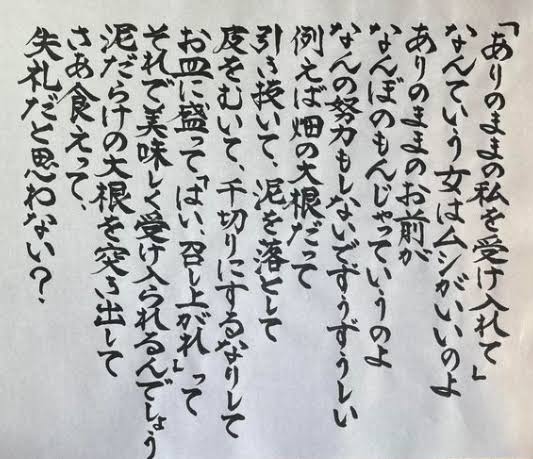 「ありのままの私を受け入れて」
なんていう女はムシがいいのよ
ありのままのお前が
なんぼのもんじゃっていうのよ
なんの努力もしないでずうずうしい
例えば畑の大根だって
引き抜いて、泥を落として
皮をむいて、千切りにするなりして
お皿に盛って「はい、召し上がれ」って
それで美味しく受け入れられるんでしょう
泥だらけの大根を突き出して
さあ食えって、
失礼だと思わない？